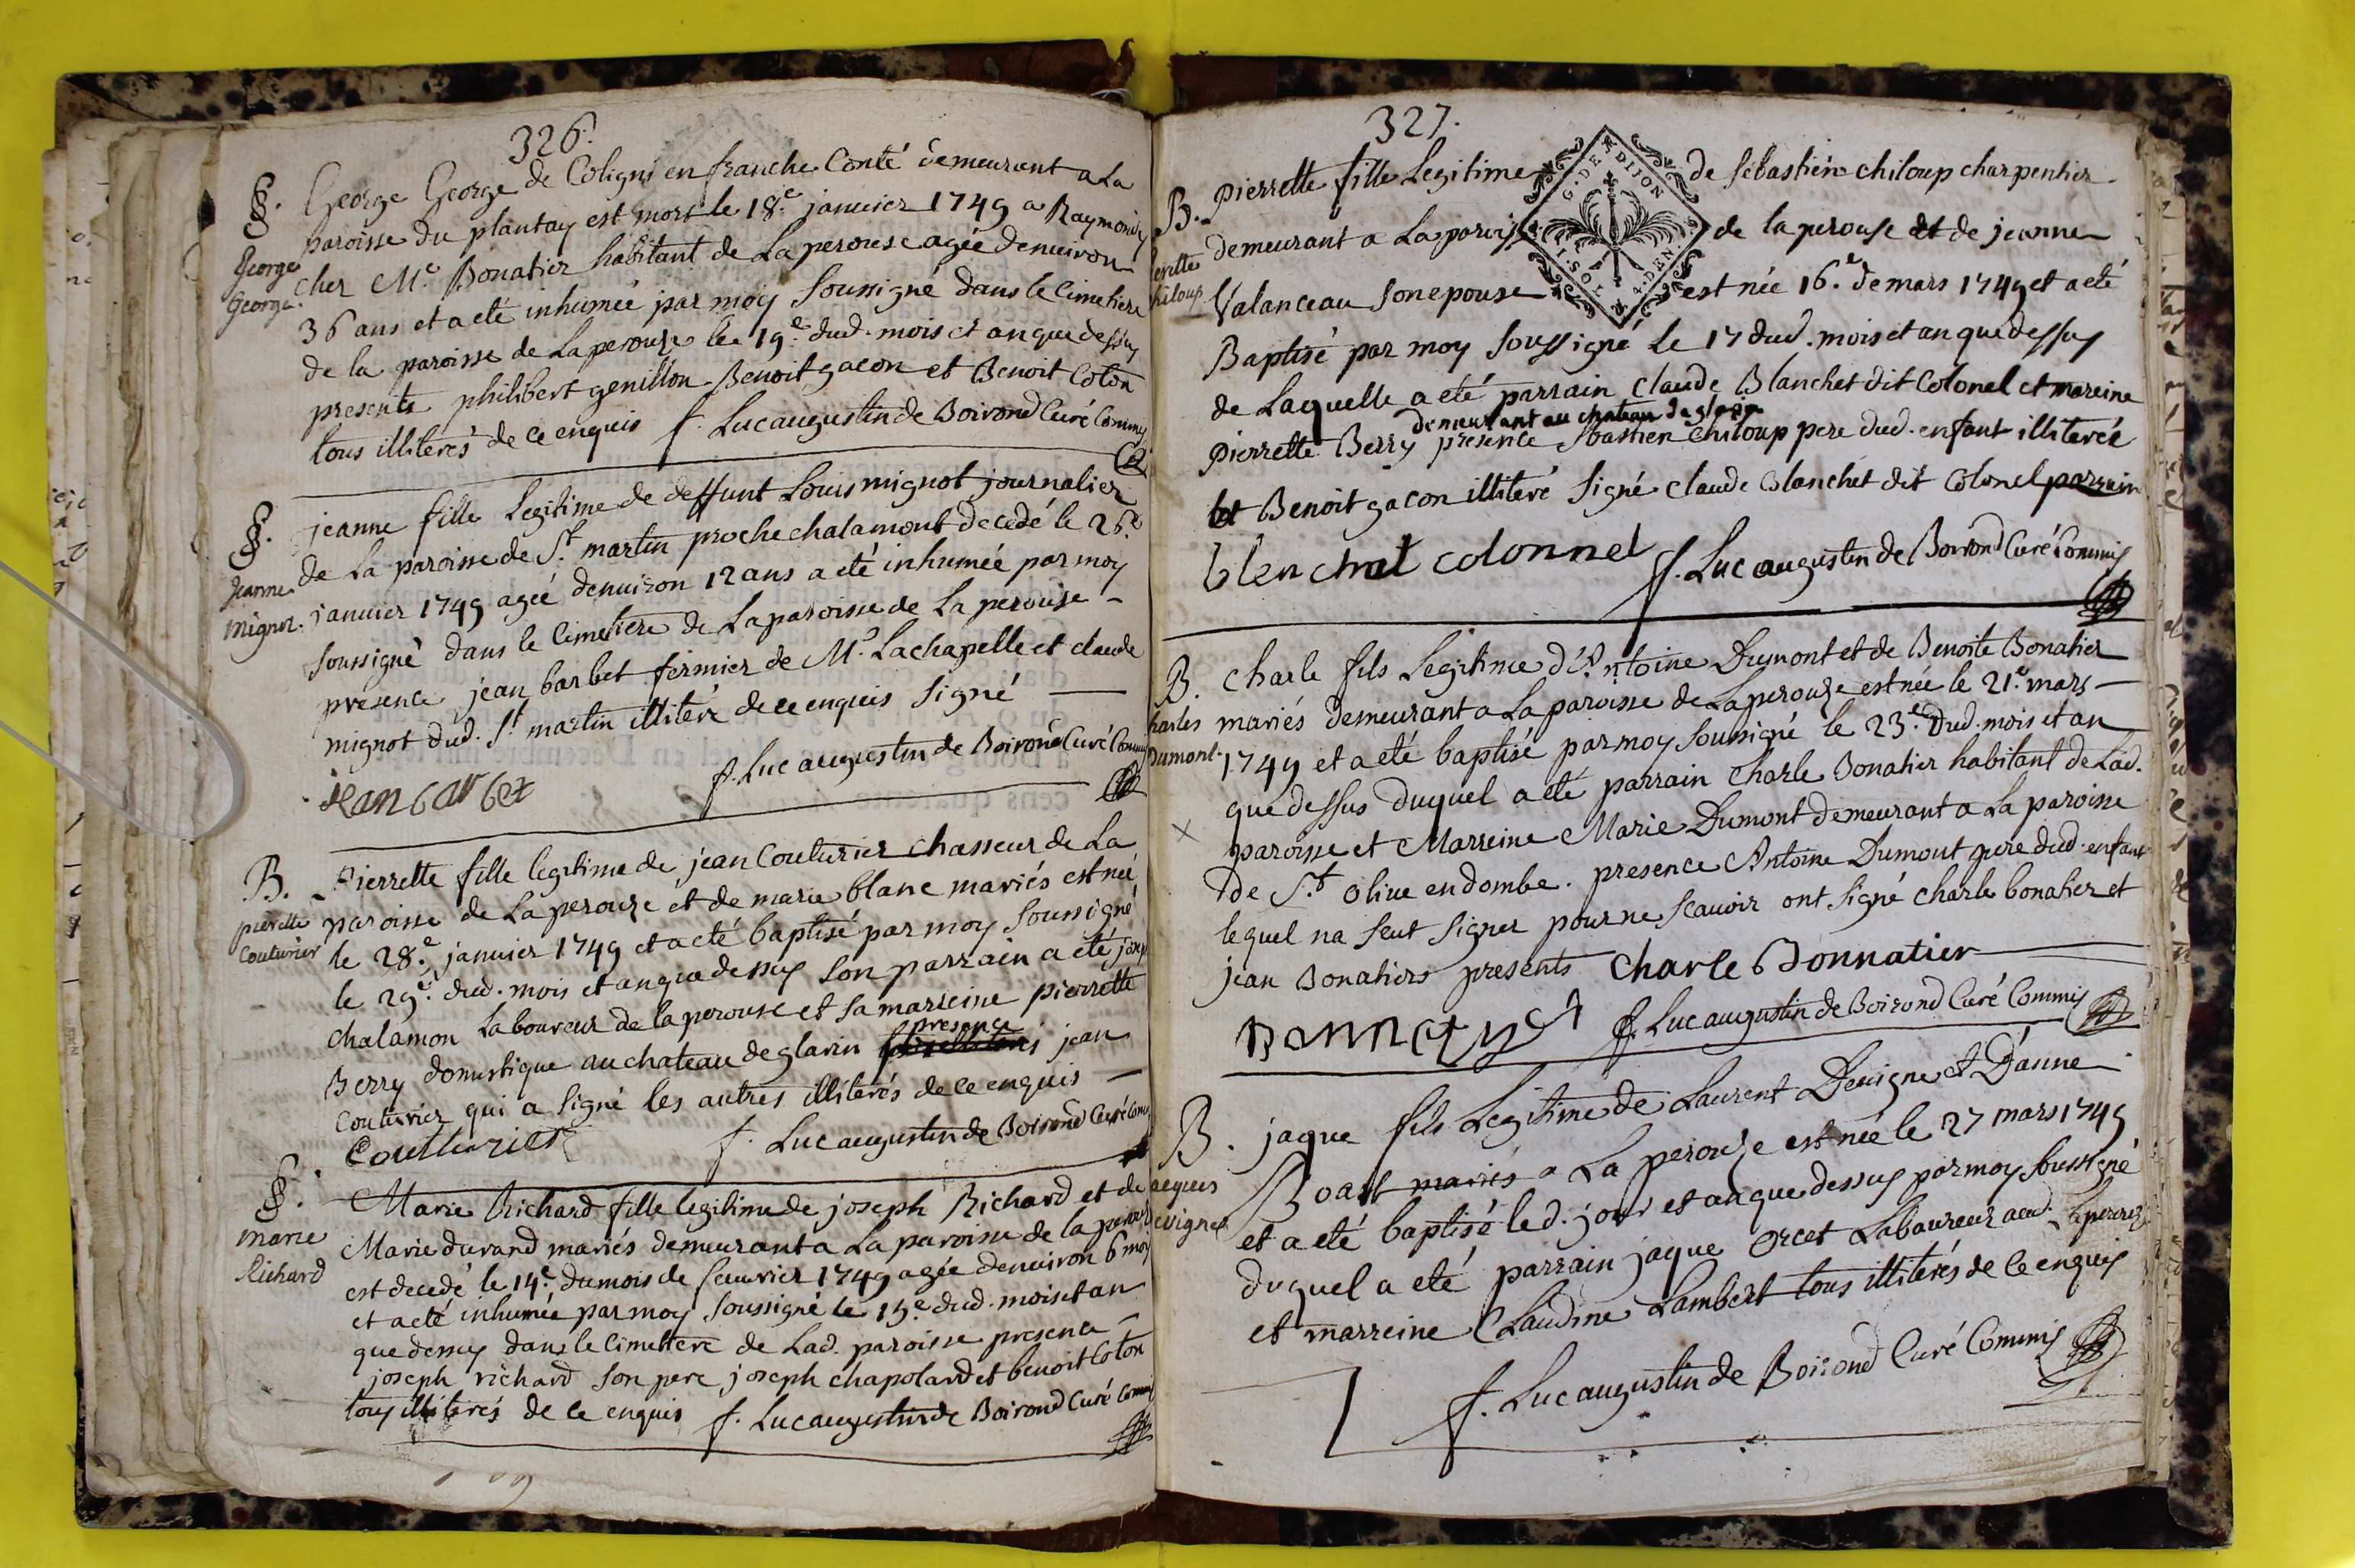 326.
§. George George de Coligni en franche Conté demeurant a La
paroisse du plantay est mort le 18.e janvier 1749 a Raymondy
George cher Me. Bonatier habitant de Laperouse agée denuiron
George. 36 ans et a eté inhumée par moy Soussigné dans le Cimetiere
de la paroisse de Laperouze le 19.e dud. mois et an que dessus
presents philibert genillon Benoit gacon et Benoit Coton
tous illiterés de ce enquis f. Luc augustin de Boirond Curé Commis
§. jeanne fille Legitime de deffunt Louis mignot journalier
de La paroisse de St. martin proche chalamont decedé le 26.e
Jeanne janvier 1749 agée denuiron 12 ans a eté inhumée par moy
mignot. soussigné dans le Cimetiere de La paroisse de La perouse –
presence jean barbet fermier de Mr. Lachapelle et claude
mignot dud. St. martin illiteré de ce enquis Signé
f. Luc augustin de Boirond Curé Commis
jean barbet
B. Pierrette fille legitime de jean Couturier chasseur de La
pierette paroisse de Laperouze et de marie blanc mariés est née
Couturier le 28.e janvier 1749 et a eté baptisé par moy Soussigné
le 29.e dud. mois et an que dessus son parrain a eté joseph
chalamon Laboureur de la perouse et sa marreine pierrette
presence
Berry domestique au chateau de glarin jean
Couturier qui a signé les autres illiterés de ce enquis –
Coutturier f. Luc augustin de Boirond Curé Com
§. Marie Richard fille legitime de joseph Richard et de
marie Marie durand mariés demeurant a La paroisse de la perouse
Richard est decedé le 14.e du mois de feuvrier 1749 agée denuiron 6 mois
et a eté inhumée par moy soussigné le 15.e dud. mois et an
que dessus dans le Cimettere de Lad. paroisse presence –
joseph richard son pere joseph chapolard et benoit Coton
tous illiterés de ce enquis f. Luc augustin de Boirond Curé Commis
327.
G. DE DIJON
I. SOL 4. DEN.
B. pierrette fille Legitime de sebastien chiloup charpentier
demeurant a La paroisse de la perouse et de jeanne
chiloup Valanceau son epouse est née 16.e de mars 1749 et a eté
Baptisé par moy soussigné le 17 dud. mois et an que dessus
de Laquelle a eté parrain Claude Blanchet dit Colonel et mareine
demeurant au chateau de glarin
pierrette Berry presence sbastien chiloup pere dud. enfant illiterée
et Benoit gacon illiteré signé claude blanchet dit colonel parrain
blenchat colonnel f. Luc augustin de Boirond Curé Commis
B. Charle fils Legitime d'Antoine Dumont et de Benoite Bonatier
harles mariés demeurant a La paroisse de Laperouze est née le 21.e mars –
Dumont. 1749 et a eté baptisé par moy soussigné le 23.e dud. mois et an
que dessus duquel a eté parrain Charle Bonatier habitant de Lad.
paroisse et Marreine Marie Dumont demeurant a La paroisse
de St. Olive en dombe. presence Antoine Dumont pere dud. enfant
lequel na seut signer pour ne scauoir ont signé charle bonatier et
jean Bonatiers presents Charle Bonnatier
f. Luc augustin de Boirond Curé Commis
B. jaque fils Legitime de Laurent Deuigne et D'anne
acques Boast mariés a La perouze est née le 27 mars 1749
euigne et a eté baptisé led. jour et an que dessus par moy soussigné
duquel a eté parrain jaque Orcet Laboureur aud. Laperouze
et marreine Claudine Lambert tous illiterés de ce enquis
f. Luc augustin de Boirond Curé Commis